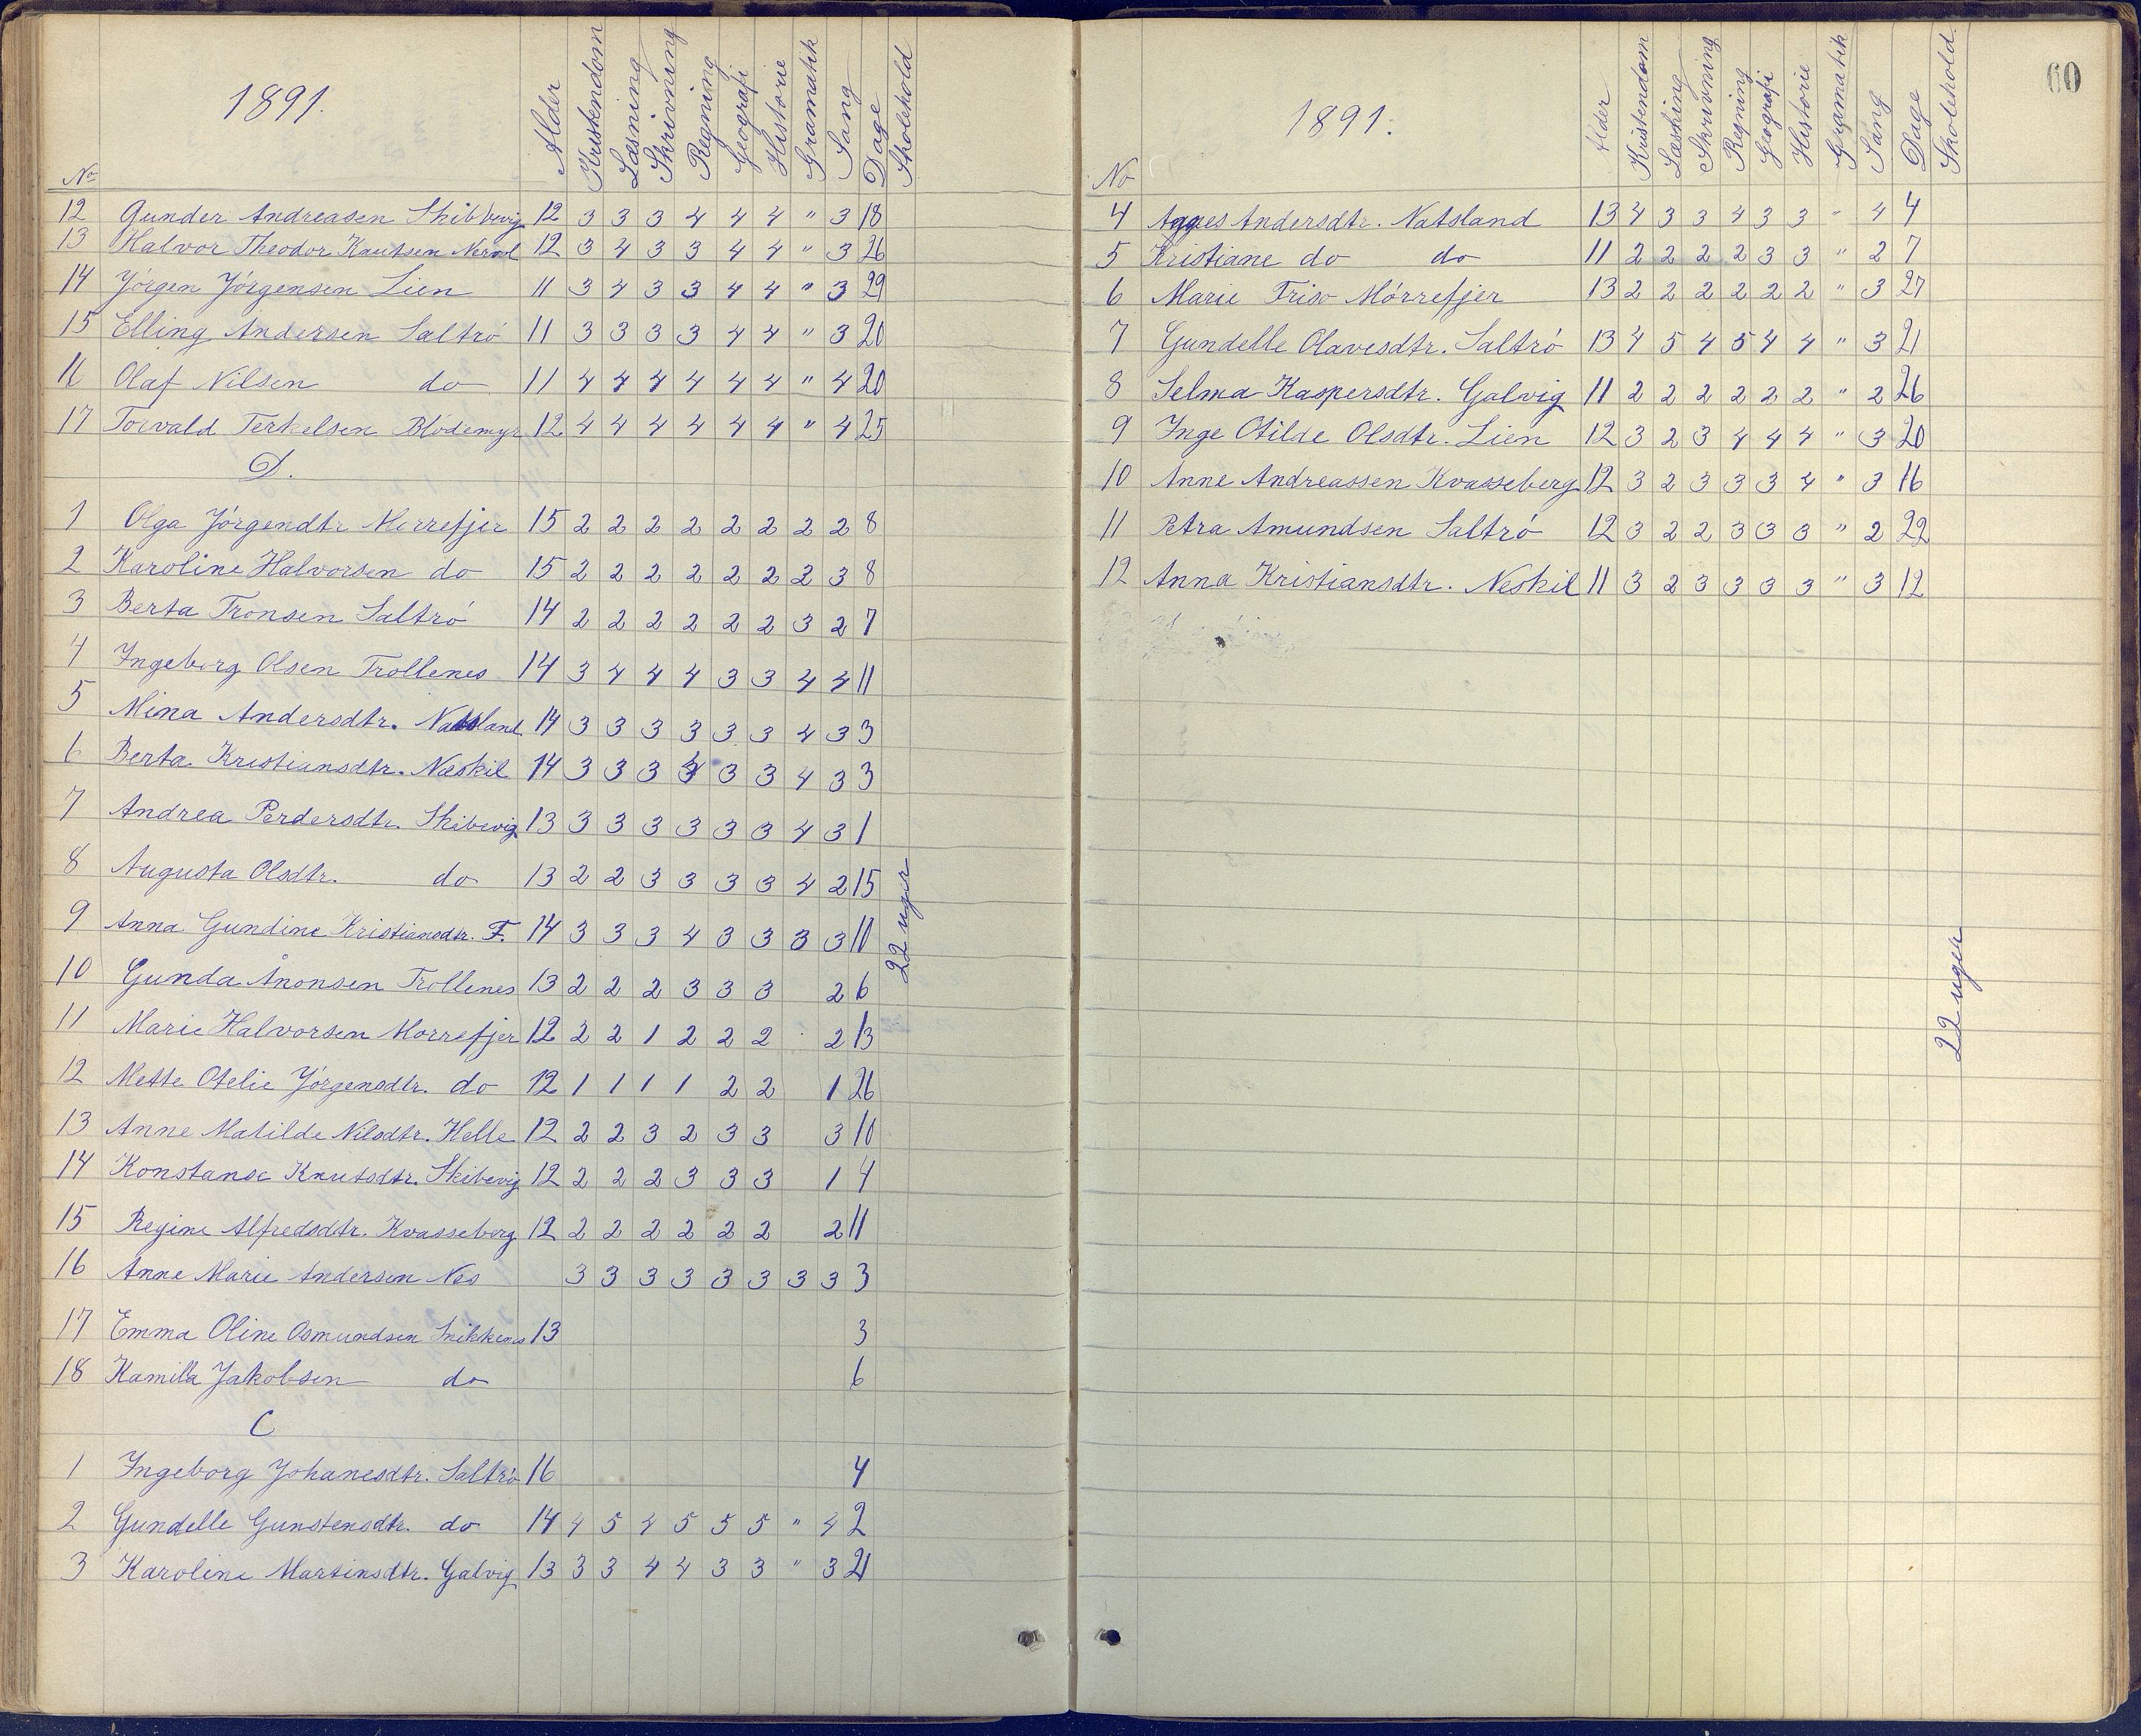 1891.
No Alder Kristendom Læsning Skrivning Regning Geografi Historie Gramatik Sang Dage Skolehold
12 Gunder Andreasen Skibbevig 12 3 3 3 4 4 4 " 3 18
13 Halvor Theodor Knutsen 12 3 4 3 3 4 4 " 3 26
14 Jörgen Jörgensen Lien 11 3 4 3 3 4 4 " 3 29
15 Elling Andersen Saltrö 11 3 3 3 3 4 4 " 3 20
16 Olaf Nilsen do 11 4 4 4 4 4 4 " 4 20
17 Torvald Terkelsen Blödemyr 12 4 4 4 4 4 4 " 4 25
D.
1 Olga Jörgendtr Morrefjer 15 2 2 2 2 2 2 2 2 8
2 Karoline Halvorsen do 15 2 2 2 2 2 2 2 3 8
3 Berta Tronsen Saltrö 14 2 2 2 2 2 2 3 2 7
4 Ingeborg Olsen Trollenes 14 3 4 4 4 3 3 4 4 11
5 Mina Andersdtr. Natsland 14 3 3 3 3 3 3 4 3 3
6 Berta Kristiansdtr. Næskil 14 3 3 3 4 3 3 4 3 3
7 Andrea Perdersdtr. Skibevig 13 3 3 3 3 3 3 4 3 1
8 Augusta Olsdtr. do 13 2 2 3 3 3 3 4 2 15
9 Anna Gundine Kristiansdtr. F. 14 3 3 3 4 3 3 3 3 10
10 Gunda Ånonsen Trollenes 13 2 2 2 3 3 3 2 6
11 Marie Halvorsen Morrefjer 12 2 2 1 2 2 2 2 13
12 Mette Otelie Jörgensdtr. do 12 1 1 1 1 2 2 1 26
13 Anne Matilde Nilsdtr. Helle 12 2 2 3 2 3 3 3 10
14 Konstanse Knutsdtr. Skibevig 12 2 2 2 3 3 3 1 4
15 Regine Alfredsdtr. Kvasseberg 12 2 2 2 2 2 2 2 11
16 Anne Marie Andersen Nes 3 3 3 3 3 3 3 3 3
17 Emma Oline Osmundsen Snikkenes 13 3
18 Kamilla Jakobsen do 6
22 uger
C
1 Ingeborg Johanesdtr. Saltrö 16 4
2 Gundelle Gunstensdtr. do 14 4 5 4 5 5 5 " 4 2
3 Karoline Martinsdtr. Galvig 13 3 3 4 4 3 3 " 3 21
60
1891.
No Alder Kristendom Læsning Skrivning Regning Geografi Historie Gramatik Sang Dage Skolehold.
4 Agnes Andersdtr. Natsland 13 4 3 3 4 3 3 " 4 4
5 Kristiane do do 11 2 2 2 2 3 3 " 2 7
6 Marie Friso Mörrefjer 13 2 2 2 2 2 2 " 3 27
7 Gundelle Olavesdtr. Saltrö 13 4 5 4 5 4 4 " 3 21
8 Selma Kaspersdtr. Galvig 11 2 2 2 2 2 2 " 2 26
9 Inge Otilde Olsdtr. Lien 12 3 2 3 4 4 4 " 3 20
10 Anne Andreassen Kvasseberg 12 3 2 3 3 3 4 " 3 16
11 Petra Amundsen Saltrö 12 3 2 2 3 3 3 " 2 22
12 Anna Kristiansdtr. Neskil 11 3 2 3 3 3 3 " 3 12
22 uger